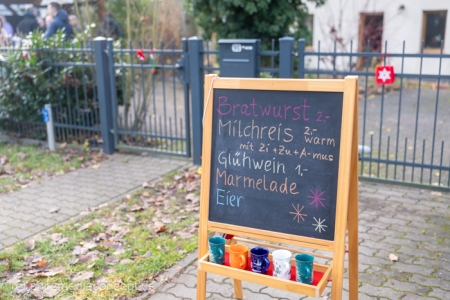 Bratwurst 2,-
Milchreis 2,-
warm
mit Zi+Zu+A-mus
Glühwein 1,-
Marmelade
Eier